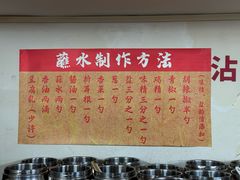 蘸水制作方法
（怪枝、盐酌情添加）
胡辣椒半勺
青椒一勺
鸡精一勺
味精三分之一勺
盐三分之一勺
葱一勺
香菜一勺
折耳根一勺
酱油一勺
蒜水两勺
香油两滴
豆腐乳（少许）
沾